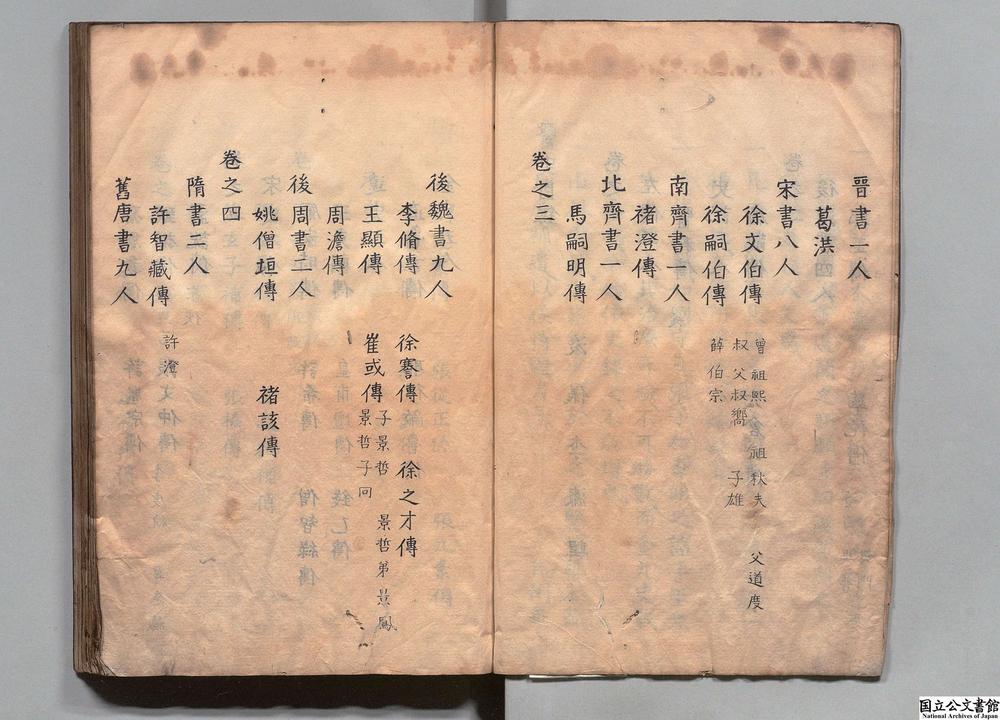 晉書一人
葛洪
宋書八人
徐文伯傳 曾祖熙 祖秋夫 父道度
叔父叔嚮 子雄
徐嗣伯傳 薛伯宗
南齊書一人
褚澄傳
北齊書一人
馬嗣明傳
卷之三
後魏書九人
李脩傳 徐謇傳 徐之才傳
王顯傳 崔彧傳 子景哲 景哲弟景鳳
景哲子冏
周澹傳
後周書二人
姚僧垣傳 褚該傳
卷之四
隋書二人
許智藏傳 許澄
舊唐書九人
国立公文書館
National Archives of Japan